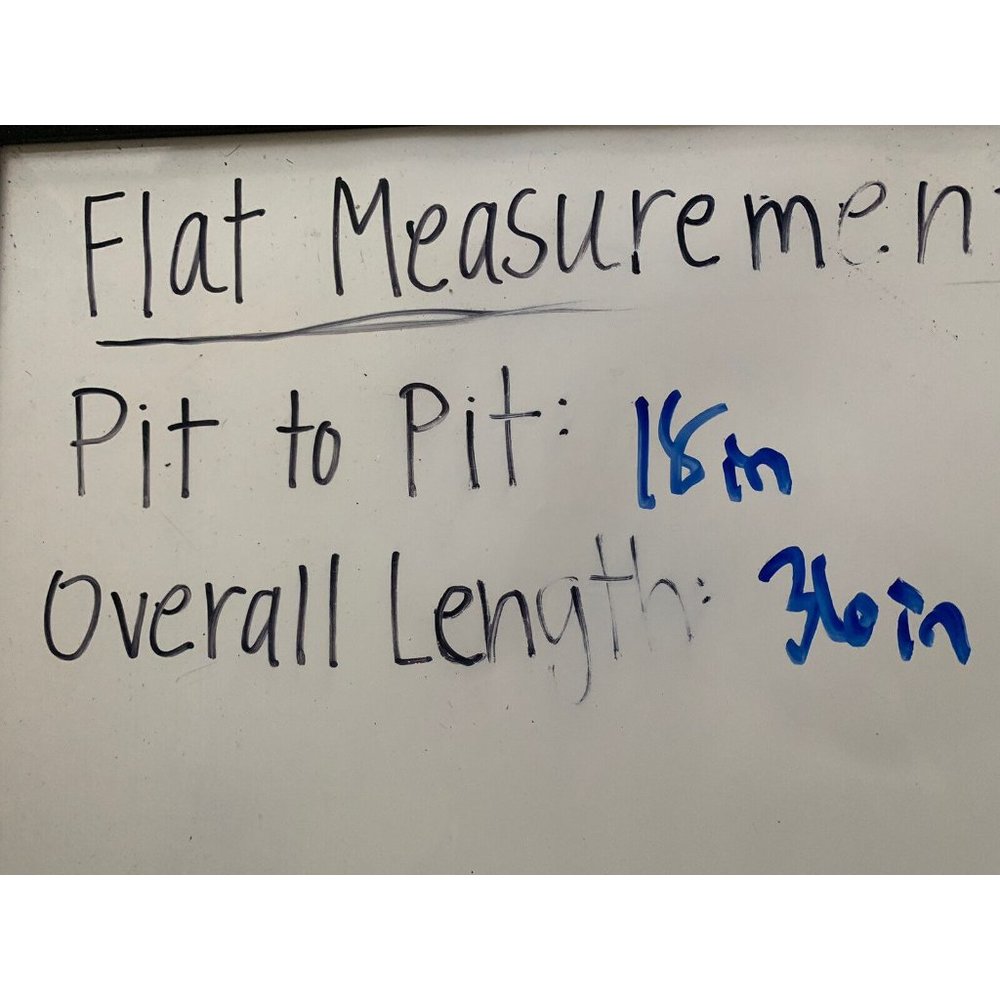 Flat Measurement
Pit to Pit: 18 in
Overall Length: 36 in